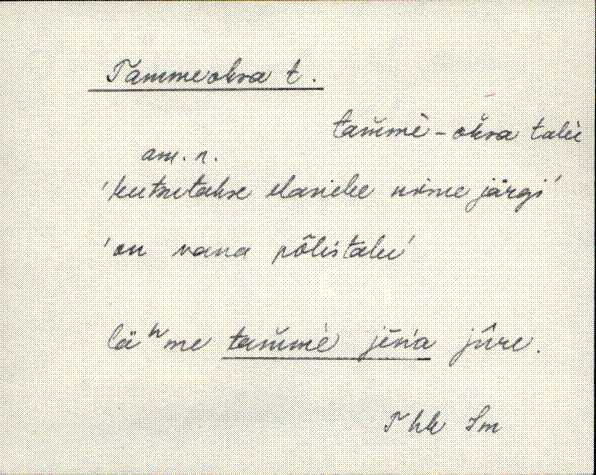 Tammeoksa t.
tam̆mè-ok̆sa talu
am. n.
'kutsutakse elanike nime järgi'
'on vana põlistalu'
läʰme tam̆mè jēńa jūre.
Thk Sm